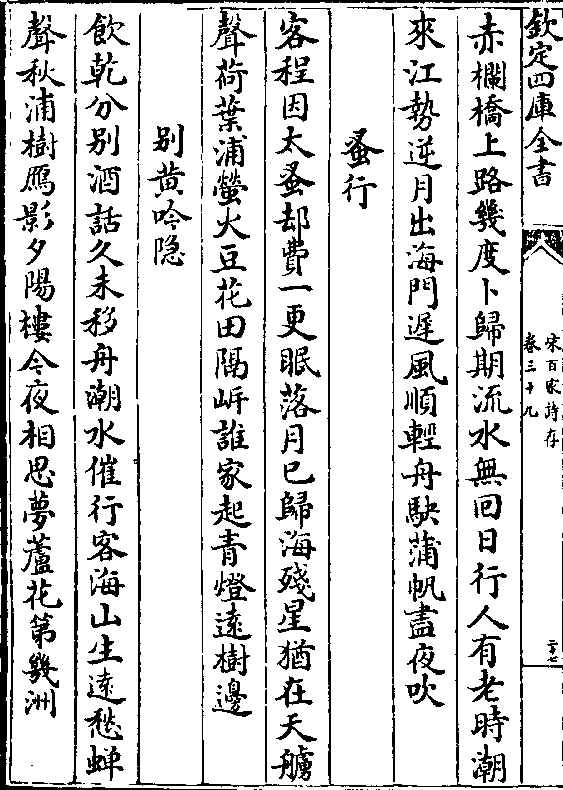 欽定四庫全書
宋百家詩存
卷三十九
二十七
赤欄橋上路幾度卜歸期流水無回日行人有老時潮
來江勢逆月出海門遲風順輕舟駃蒲帆盡夜吹
蚤行
客程因太蚤却費一更眠落月已歸海殘星猶在天艣
聲荷葉浦螢火豆花田隔岸誰家起青燈遠樹邊
別黄吟隐
飲乾分别酒話久未移舟潮水催行客海山生遠愁蝉
聲秋浦樹鴈影夕陽樓今夜相思夢蘆花第幾洲